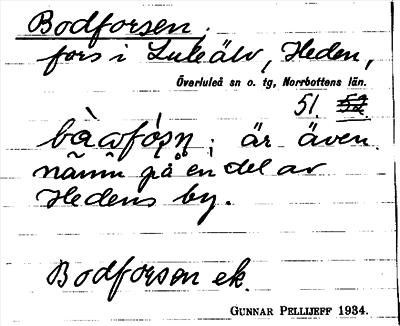 Bodforsen.
fors i Lule älv, Heden,
Överluleå sn o. tg, Norrbottens län.
51. 52
är även
namn på en del av
Hedens by.
Bodforsen ek.
GUNNAR PELLIJEFF 1934.